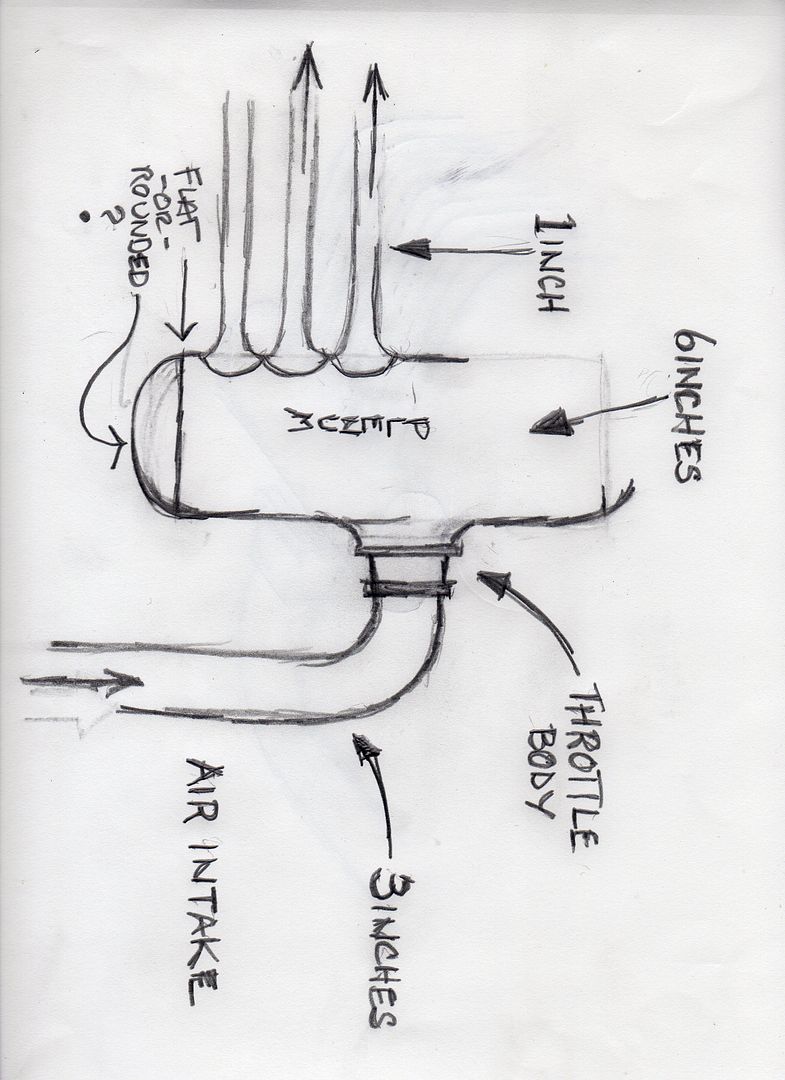 6INCHES
1INCH
THROTTLE
BODY
PLENUM
3INCHES
FLAT
-OR-
ROUNDED
?
AIR INTAKE